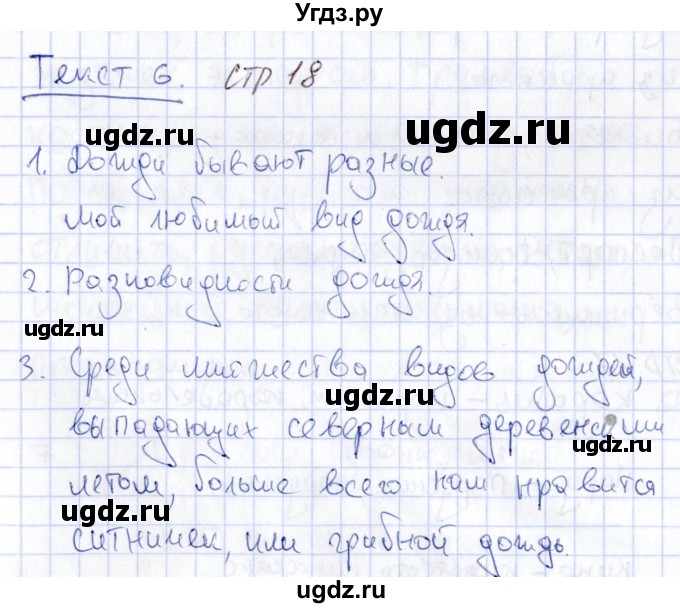 Угдз.ру
Текст 6. стр 18
ugdz.ru ugdz.ru
1. Дожди бывают разные.
ugdz.ru
Мой любимый вид дождя.
2. Разновидности дождя.
ugdz.ru
3. Среди множества видов дождей,
ugdz.ru
выпадающих северным деревенским
ugdz.ru
летом, больше всего нам нравится
ugdz.ru
ситничек, или грибной дождь.
ugdz.ru